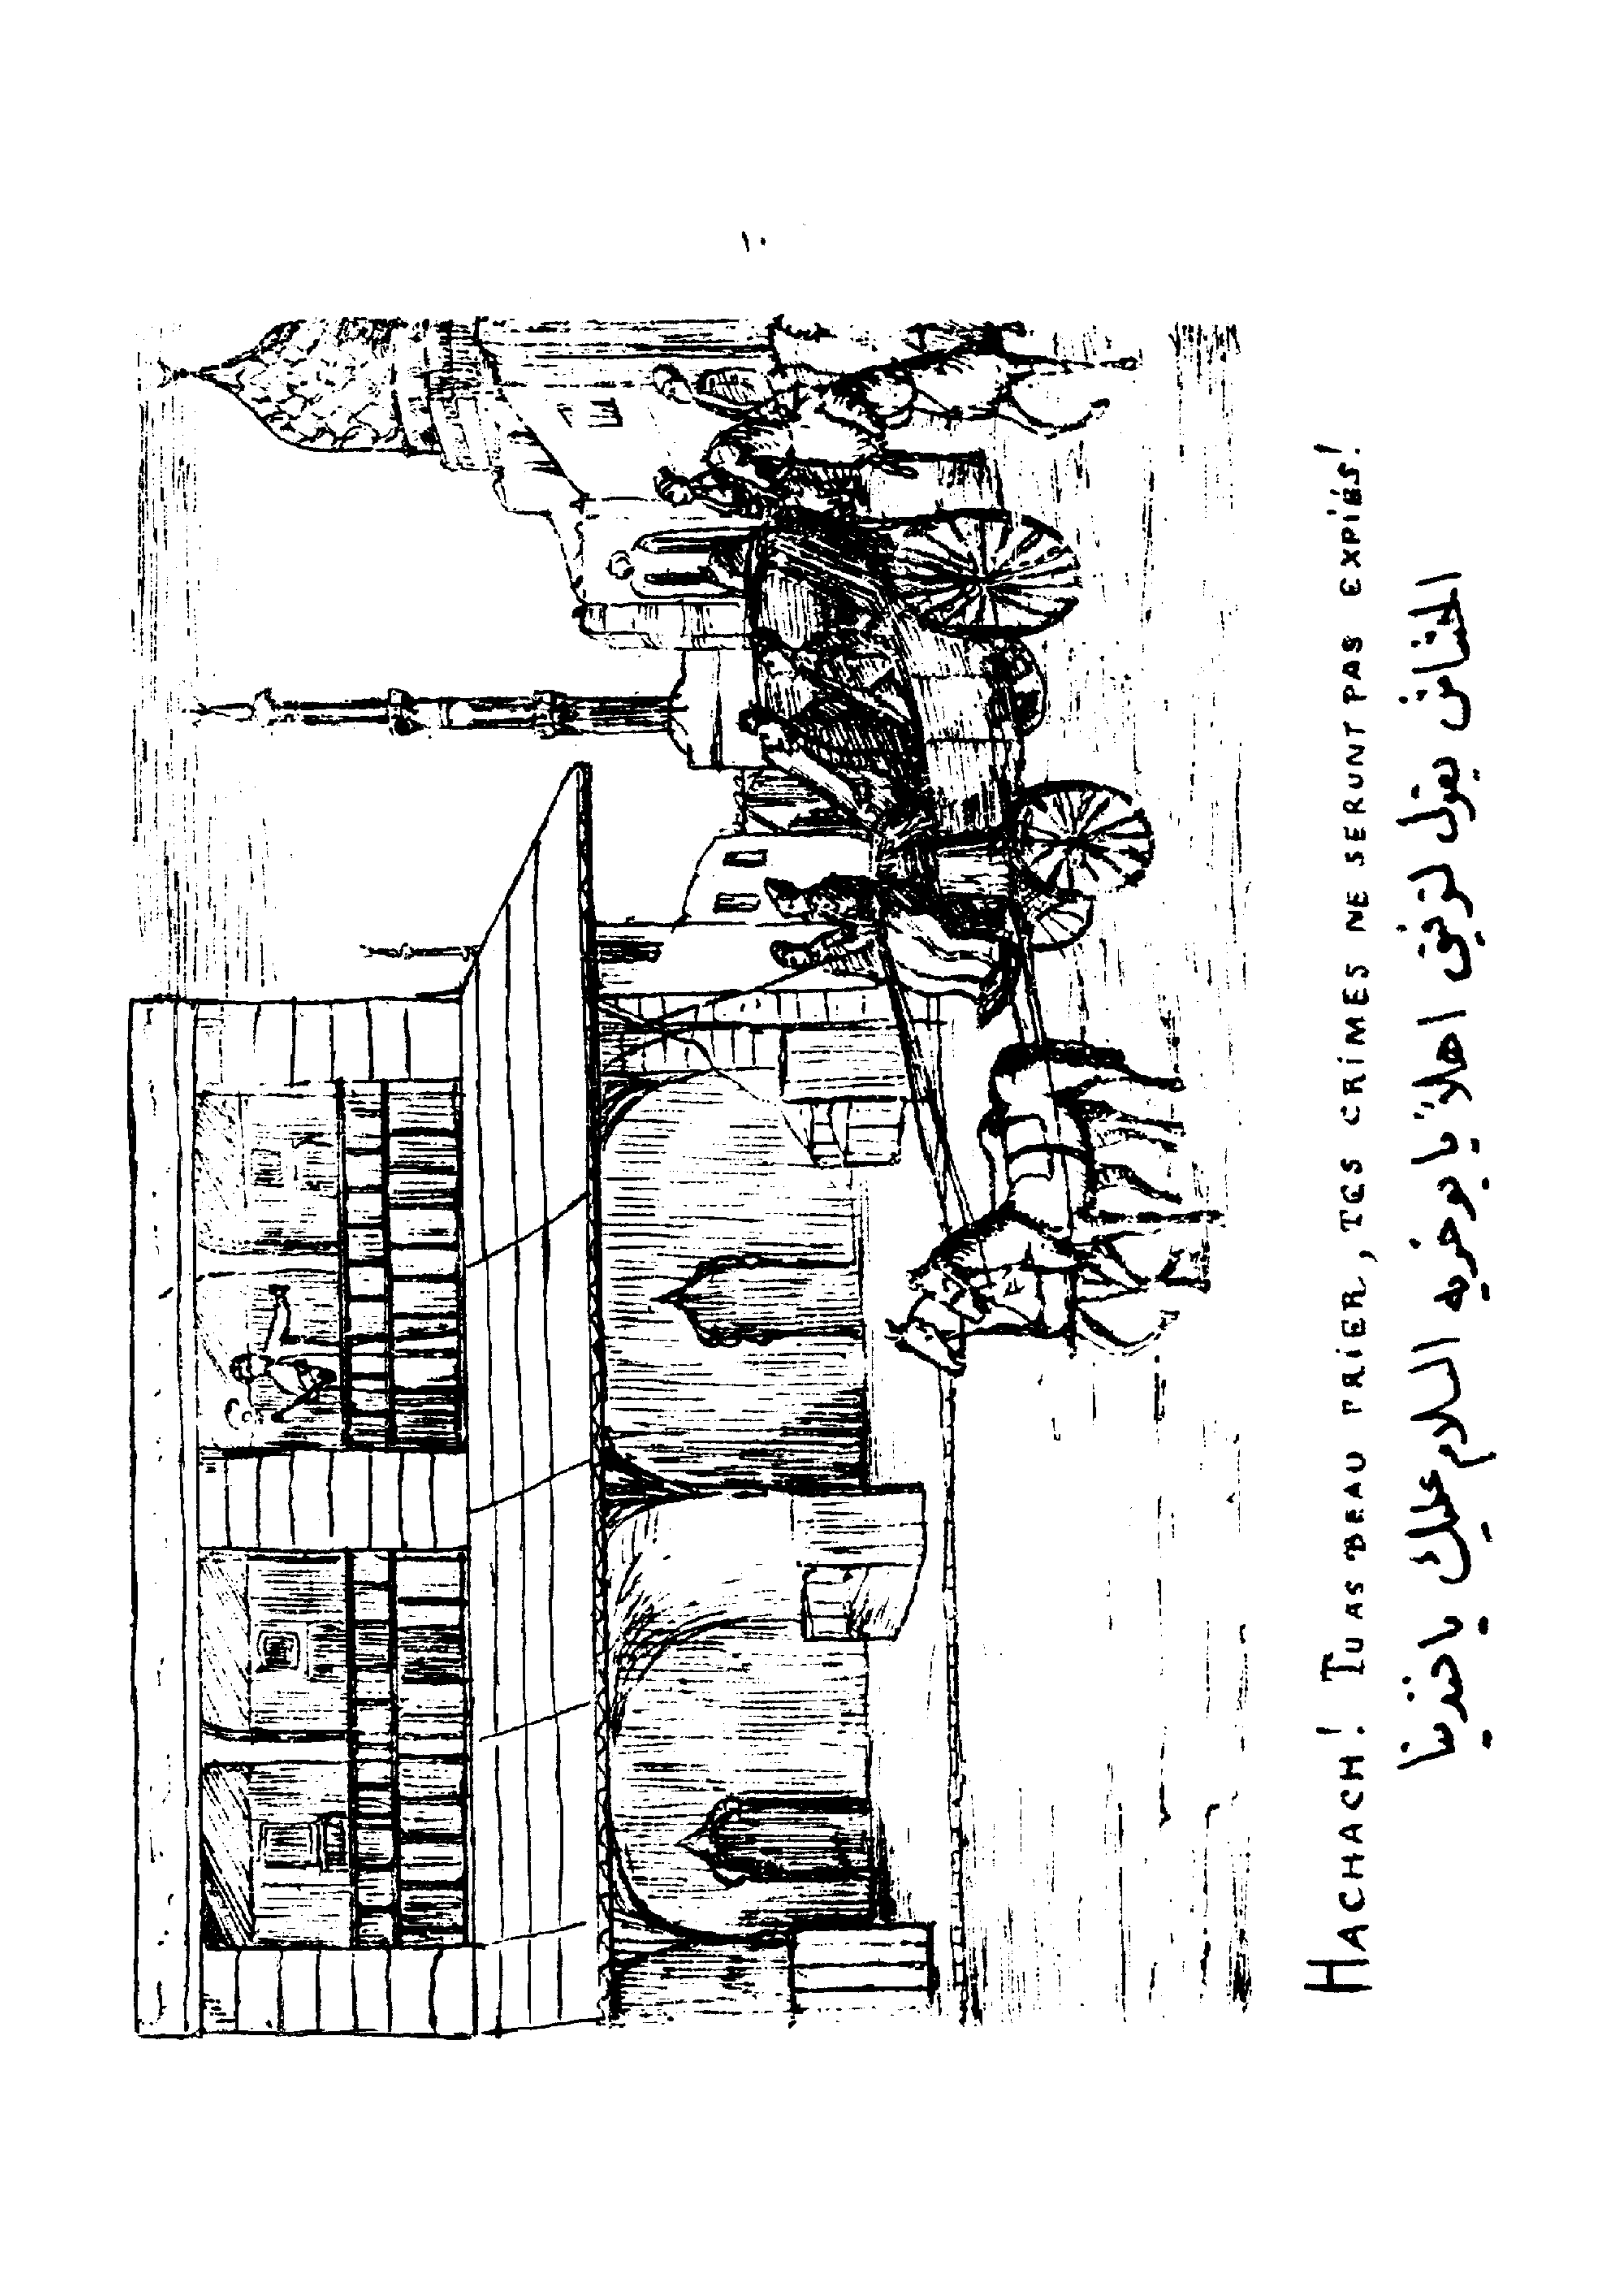 ١٠
HACHACH! TU AS BEAU PRIER, TES CRIMES NE SERONT PAS EXPIÉS!
الحشاش يقول لرفيق اهلاً يا بو خريه السلام عليك يا